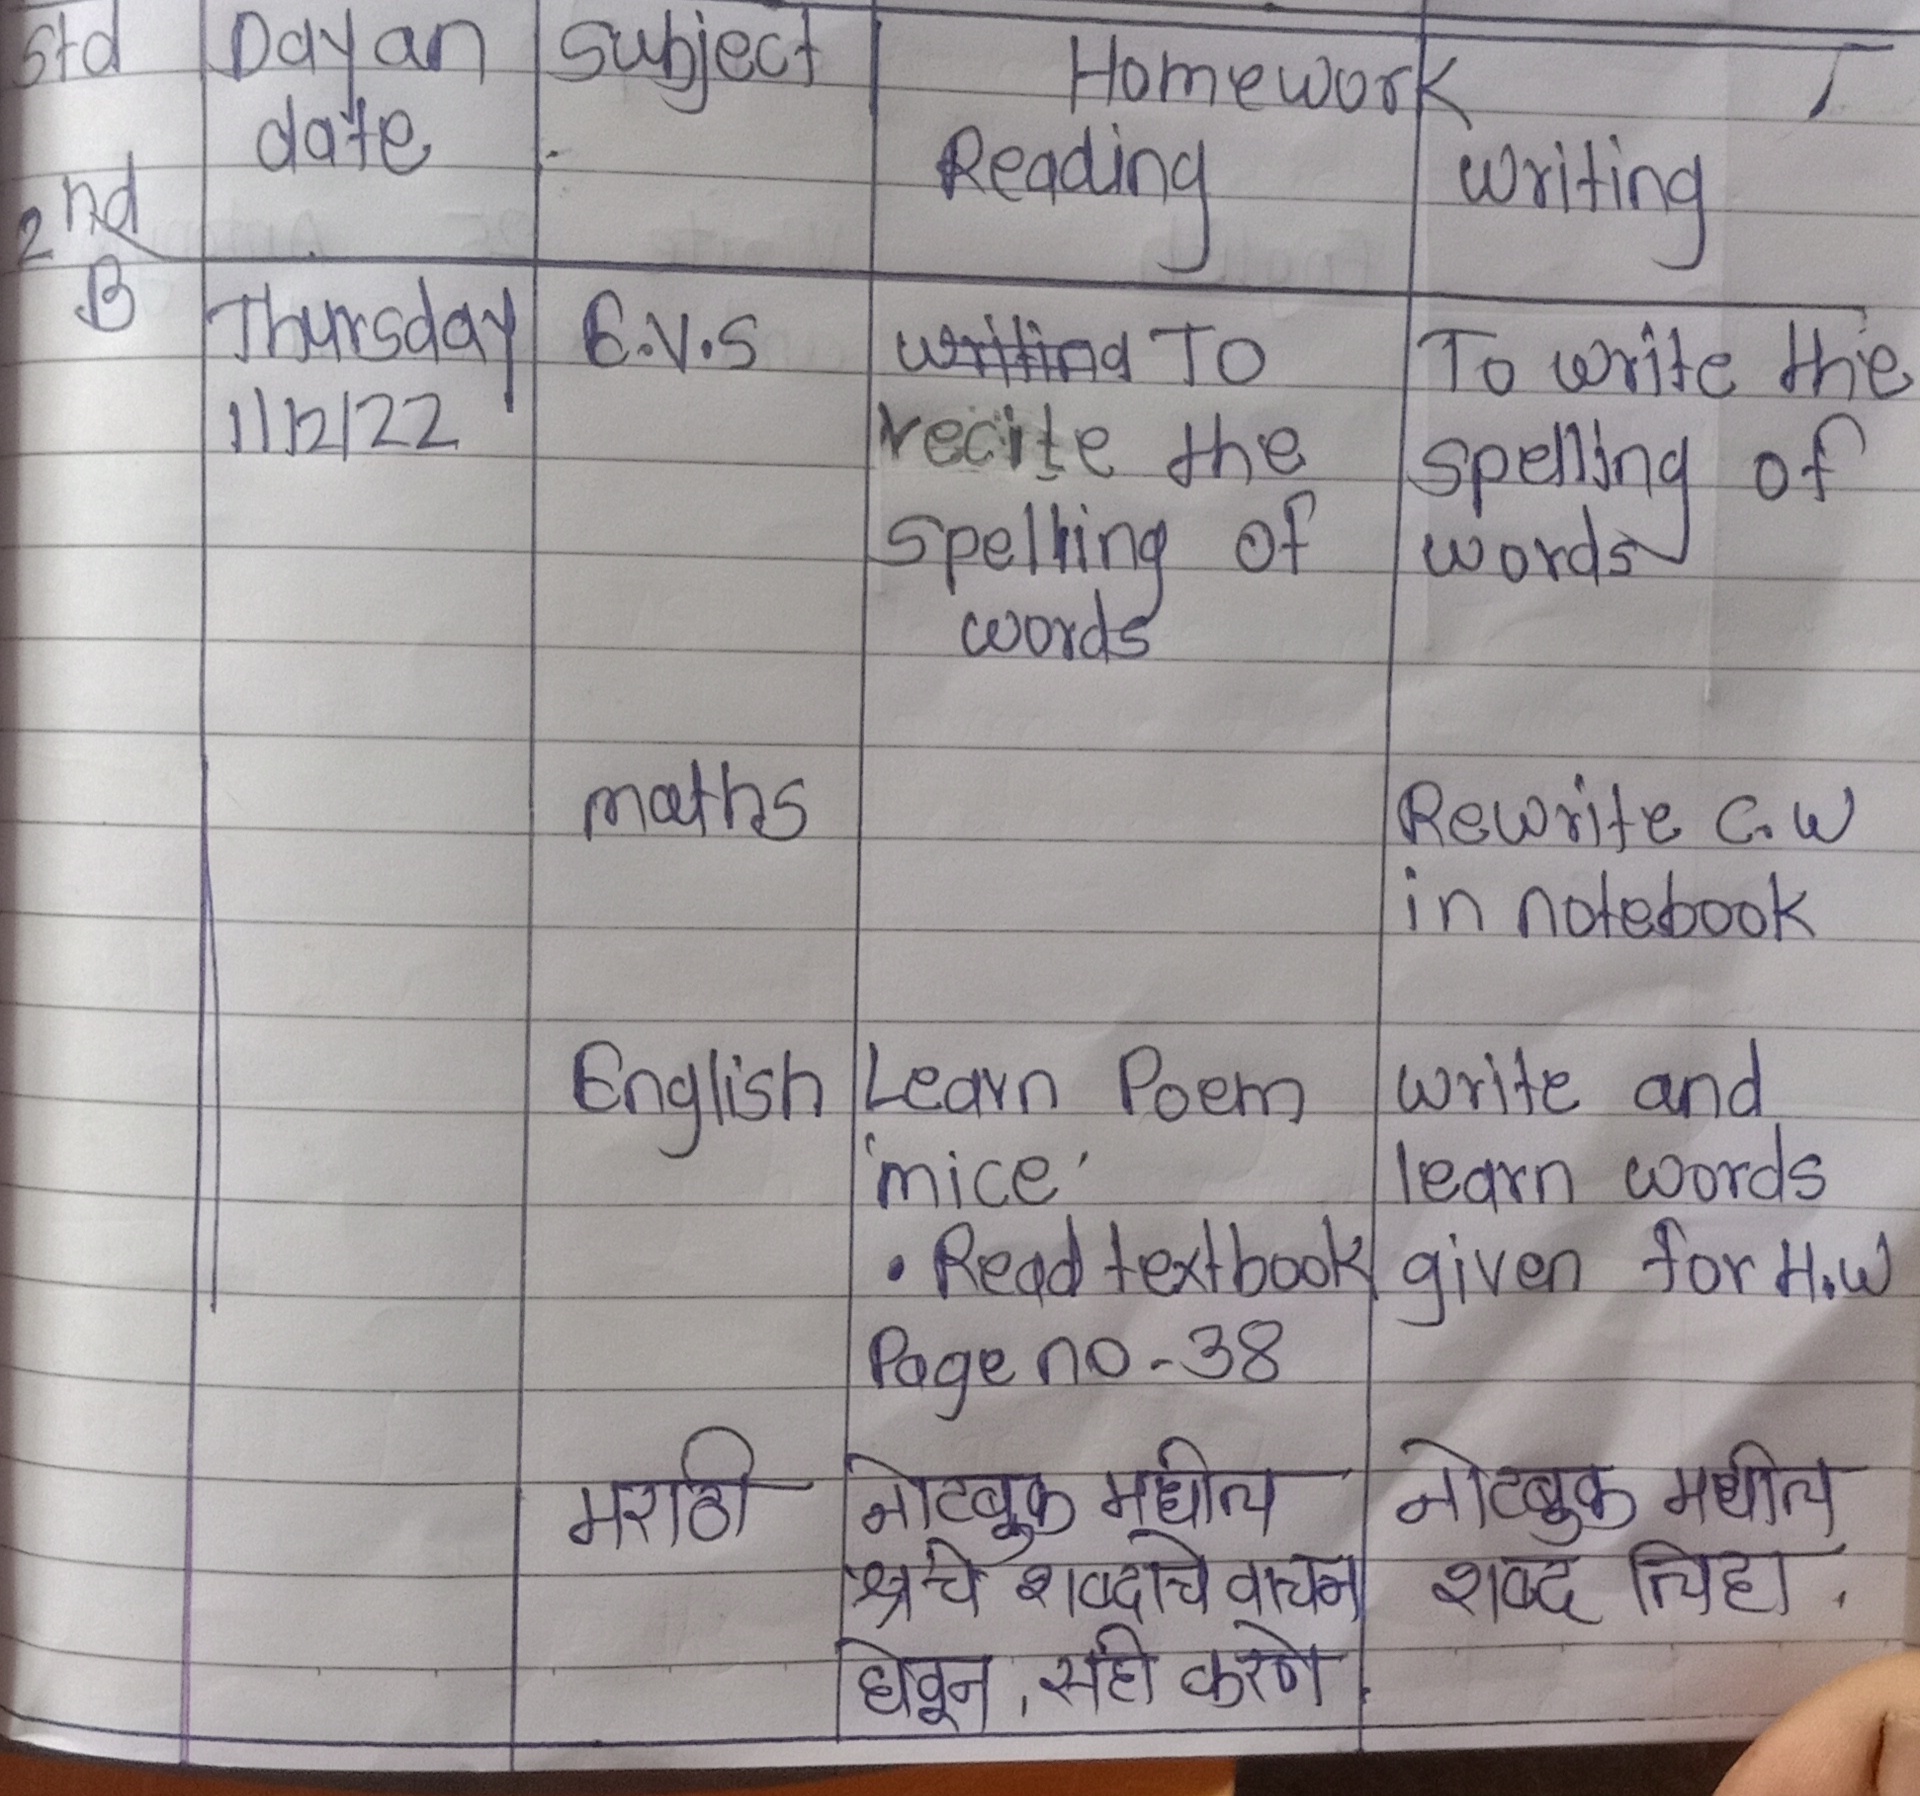 Std Day an Subject Homework
date Reading writing
2nd
B Thursday E.V.S To To write the
1/12/22 recite the spelling of
spelling of words
words
maths Rewrite C.W
in notebook
English Learn Poem write and
'mice' learn words
• Read textbook given for H.W
Page no-38
मराठी नोटबुक मधील नोटबुक मधील
श्रचे शब्दाचे वाचन शब्द लिहा.
घेवून, सही करणे.